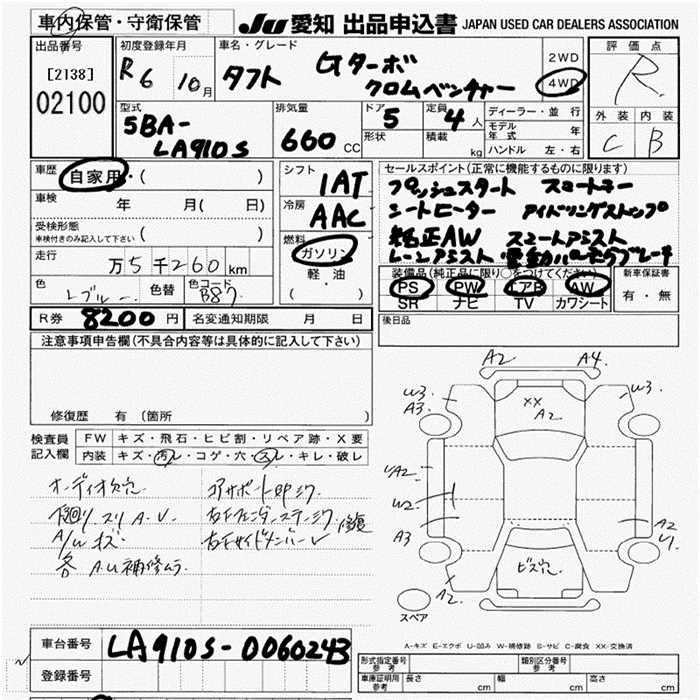 車内保管・守衛保管 JU 愛知 出品申込書 JAPAN USED CAR DEALERS ASSOCIATION
出品番号 初度登録年月 車名・グレード 2WD 評価点
[2138] R6 10月 タフト Gターボ 4WD R
02100 クロムベンチャー
型式 排気量 ドア 定員 ディーラー・並行 外装 内装
5BA- 660 CC 5 4人 モデル年式 年 C B
LA910S 形状 積載 kg ハンドル 左・右
車歴 自家用・( ) シフト 1AT セールスポイント(正常に機能するものに限ります)
車検 年 月( 日) 冷房 AAC プッシュスタート スマートキー
受検形態 シートヒーター アイドリングストップ
車検付きのみ記入して下さい ( ) 燃料 純正AW スマートアシスト
走行 万5千260km ガソリン レーンアシスト 電動パーキングブレーキ
色 色替 色コード 軽・油 装備品(純正品に限り○をつけてください) 新車保証書
Lブルー B87 ( ) PS PW エアB AW 有・無
SR ナビ TV カワシート
R券 8200円 名変通知期限 月 日 後日品
注意事項申告欄(不具合内容等は具体的に記入して下さい)
修復歴 有 (箇所
検査員 FW キズ・飛石・ヒビ割・リペア跡・X要
記入欄 内装 キズ・汚レ・コゲ・穴・スレ・キレ・破レ
オーディオ欠品 コアサポート凹シワ
下廻りスリ A.U. 右Fフェンダーステーシワ
A/Wキズ 右Fサイドメンバー
各A.U補修ムラ
A2 A4
W3 A3 XX A2 W3
A2
W2
A3 A2
U1
ビズ穴
A2
スペア
A-キズ E-エクボ U-凹み W-補修跡 S-サビ C-腐食 XX-交換済
車台番号 LA910S-0060243
登録番号
形式指定番号 参考 類別区分番号 参考
車庫証明用 参考 長さ cm 幅 cm 高さ cm